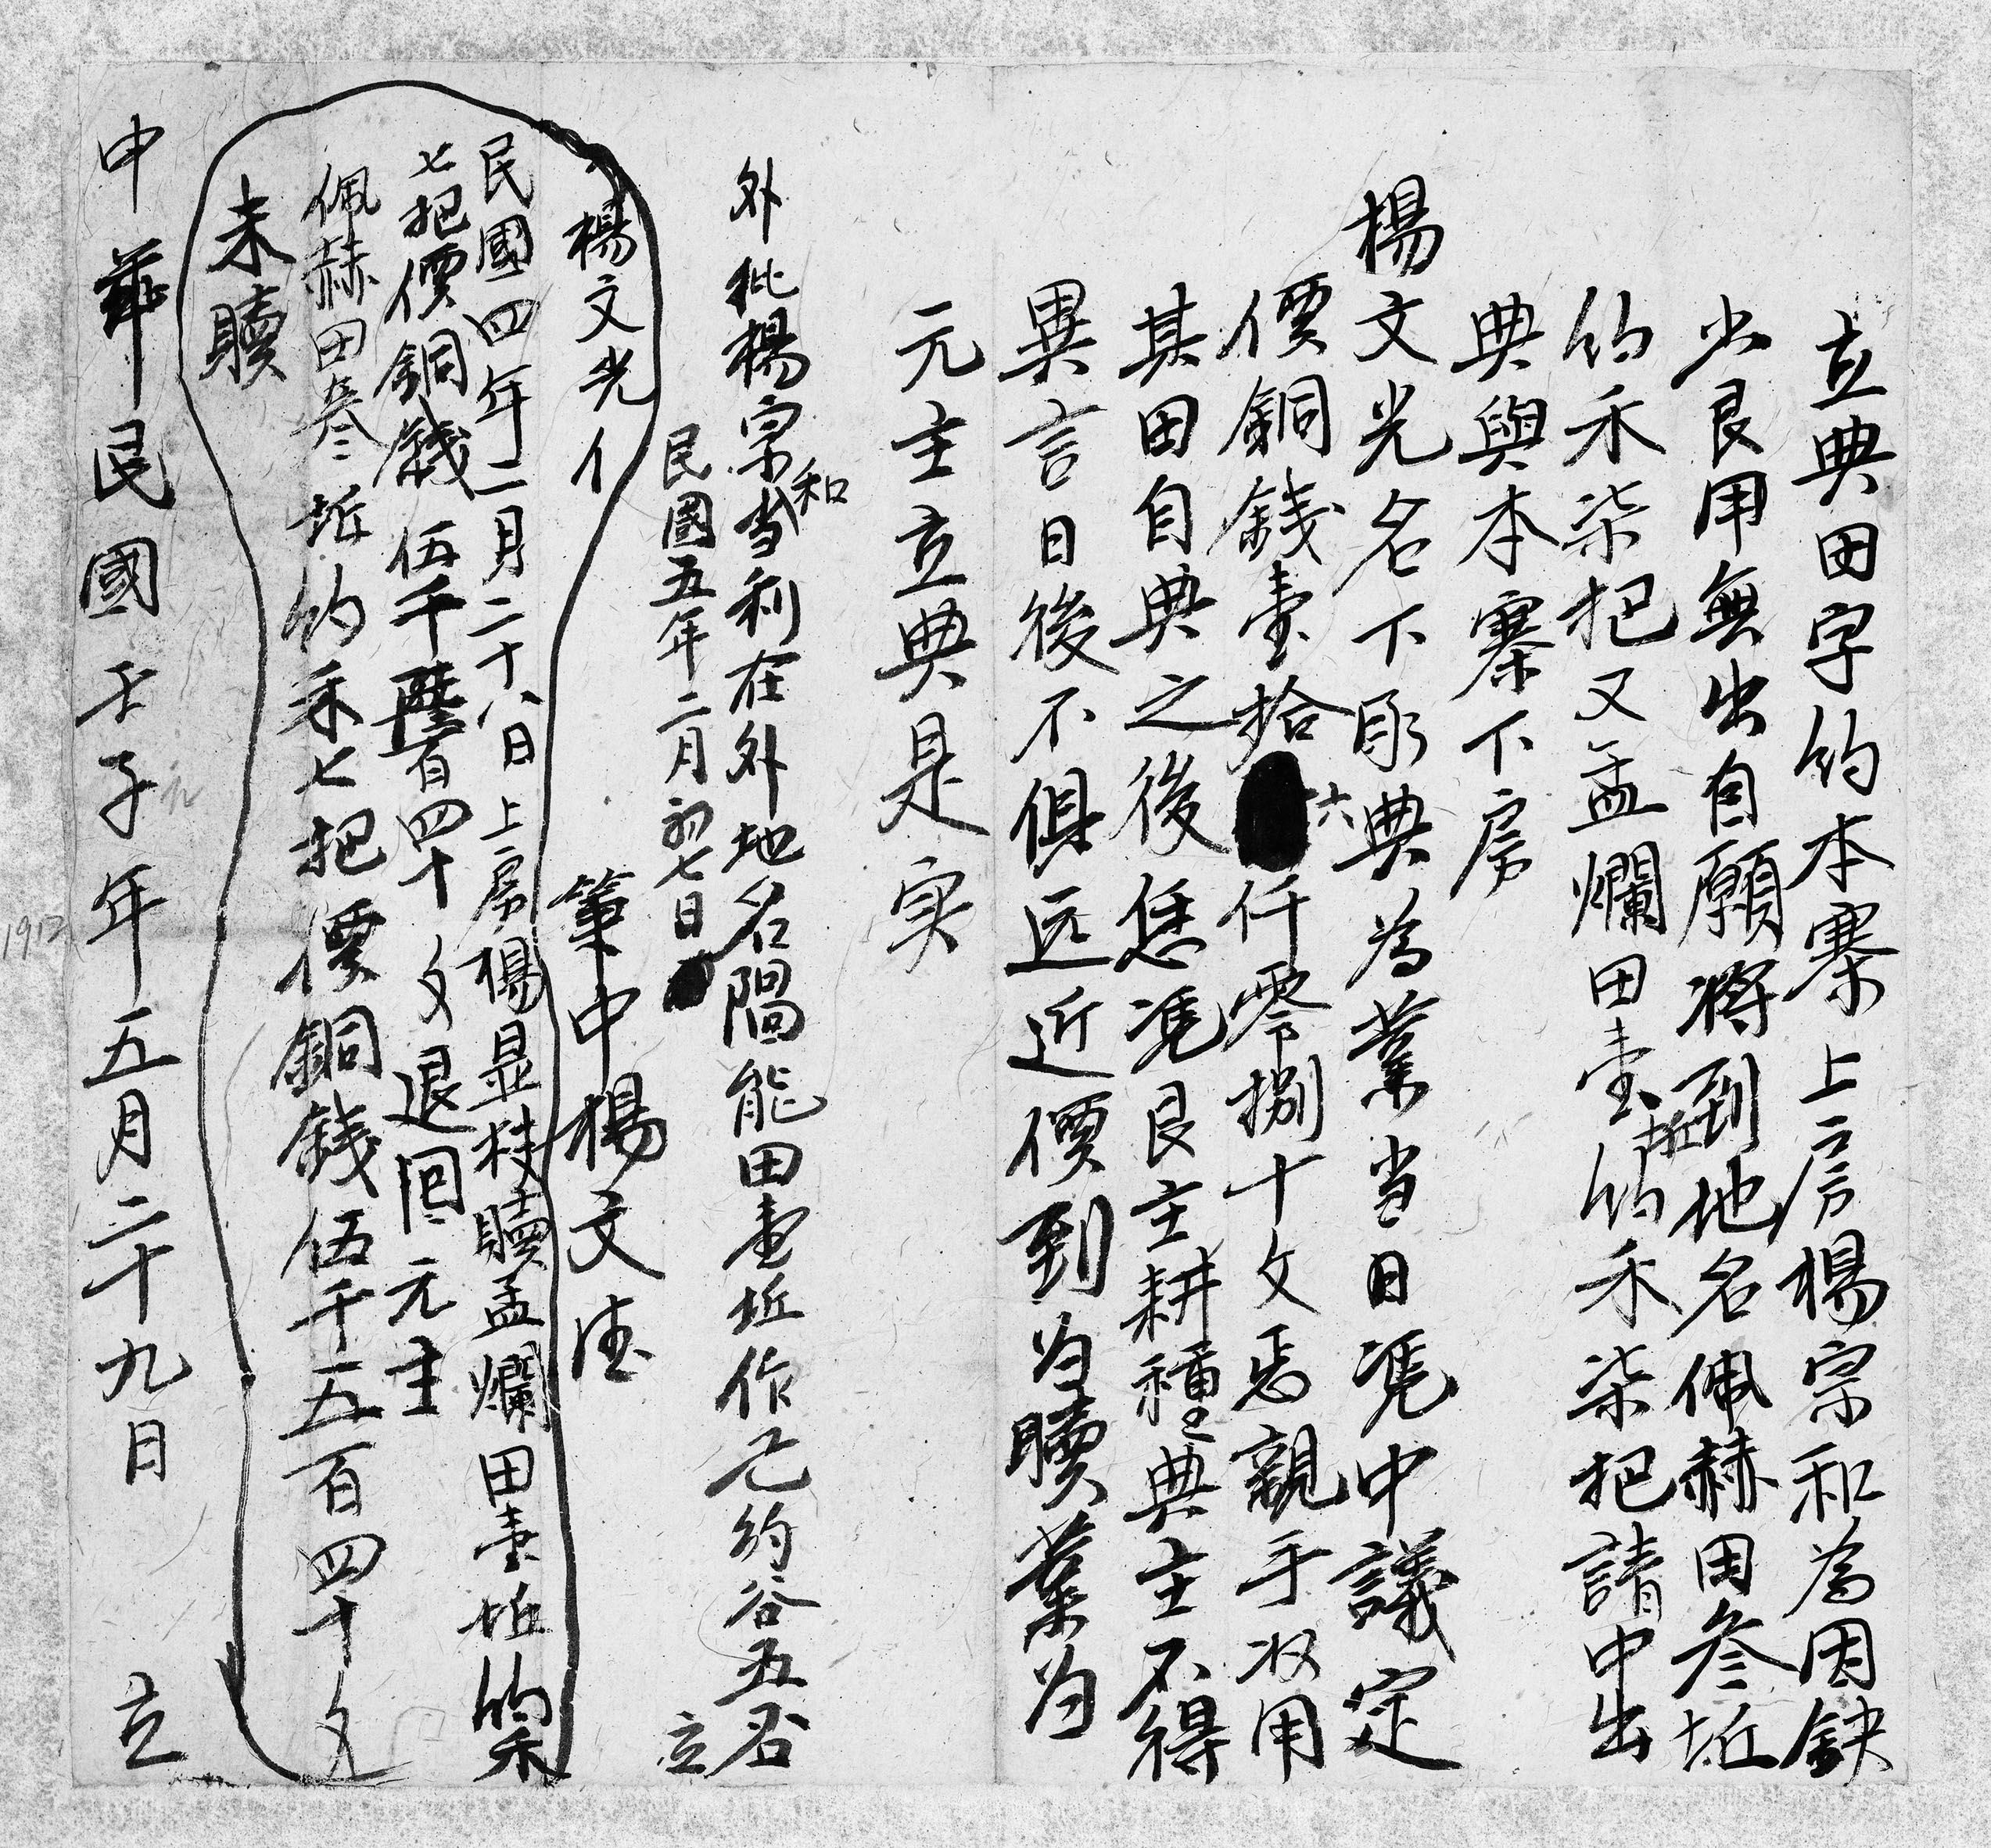 立典田字約本寨上房楊宗和為因缺
少艮用無出自願将到地名佩赫田叁坵
約禾柒把又孟爛田壹坵約禾柒把請中出
典與本寨下房
楊文光名下承典為業当日凴中議定
價銅錢壹拾六仟零捌十文悉親手收用
其田自典之後恁凴艮主耕種典主不得
異言日後不俱远近價到为贖葉为
元主立典是实
外批楊宗和当利在外地名閰能田壹坵作乙約谷五石
民國五年二月初七日 立
筆中楊文德
楊文光仆
民國四年二月二十八日上房楊显枝贖孟爛田壹坵約禾
七把價銅錢伍千陸百四十文退囘元主
佩赫田叁坵約禾七把價銅錢伍千五百四十文
未贖
中華民國壬子年五月二十九日 立
1912